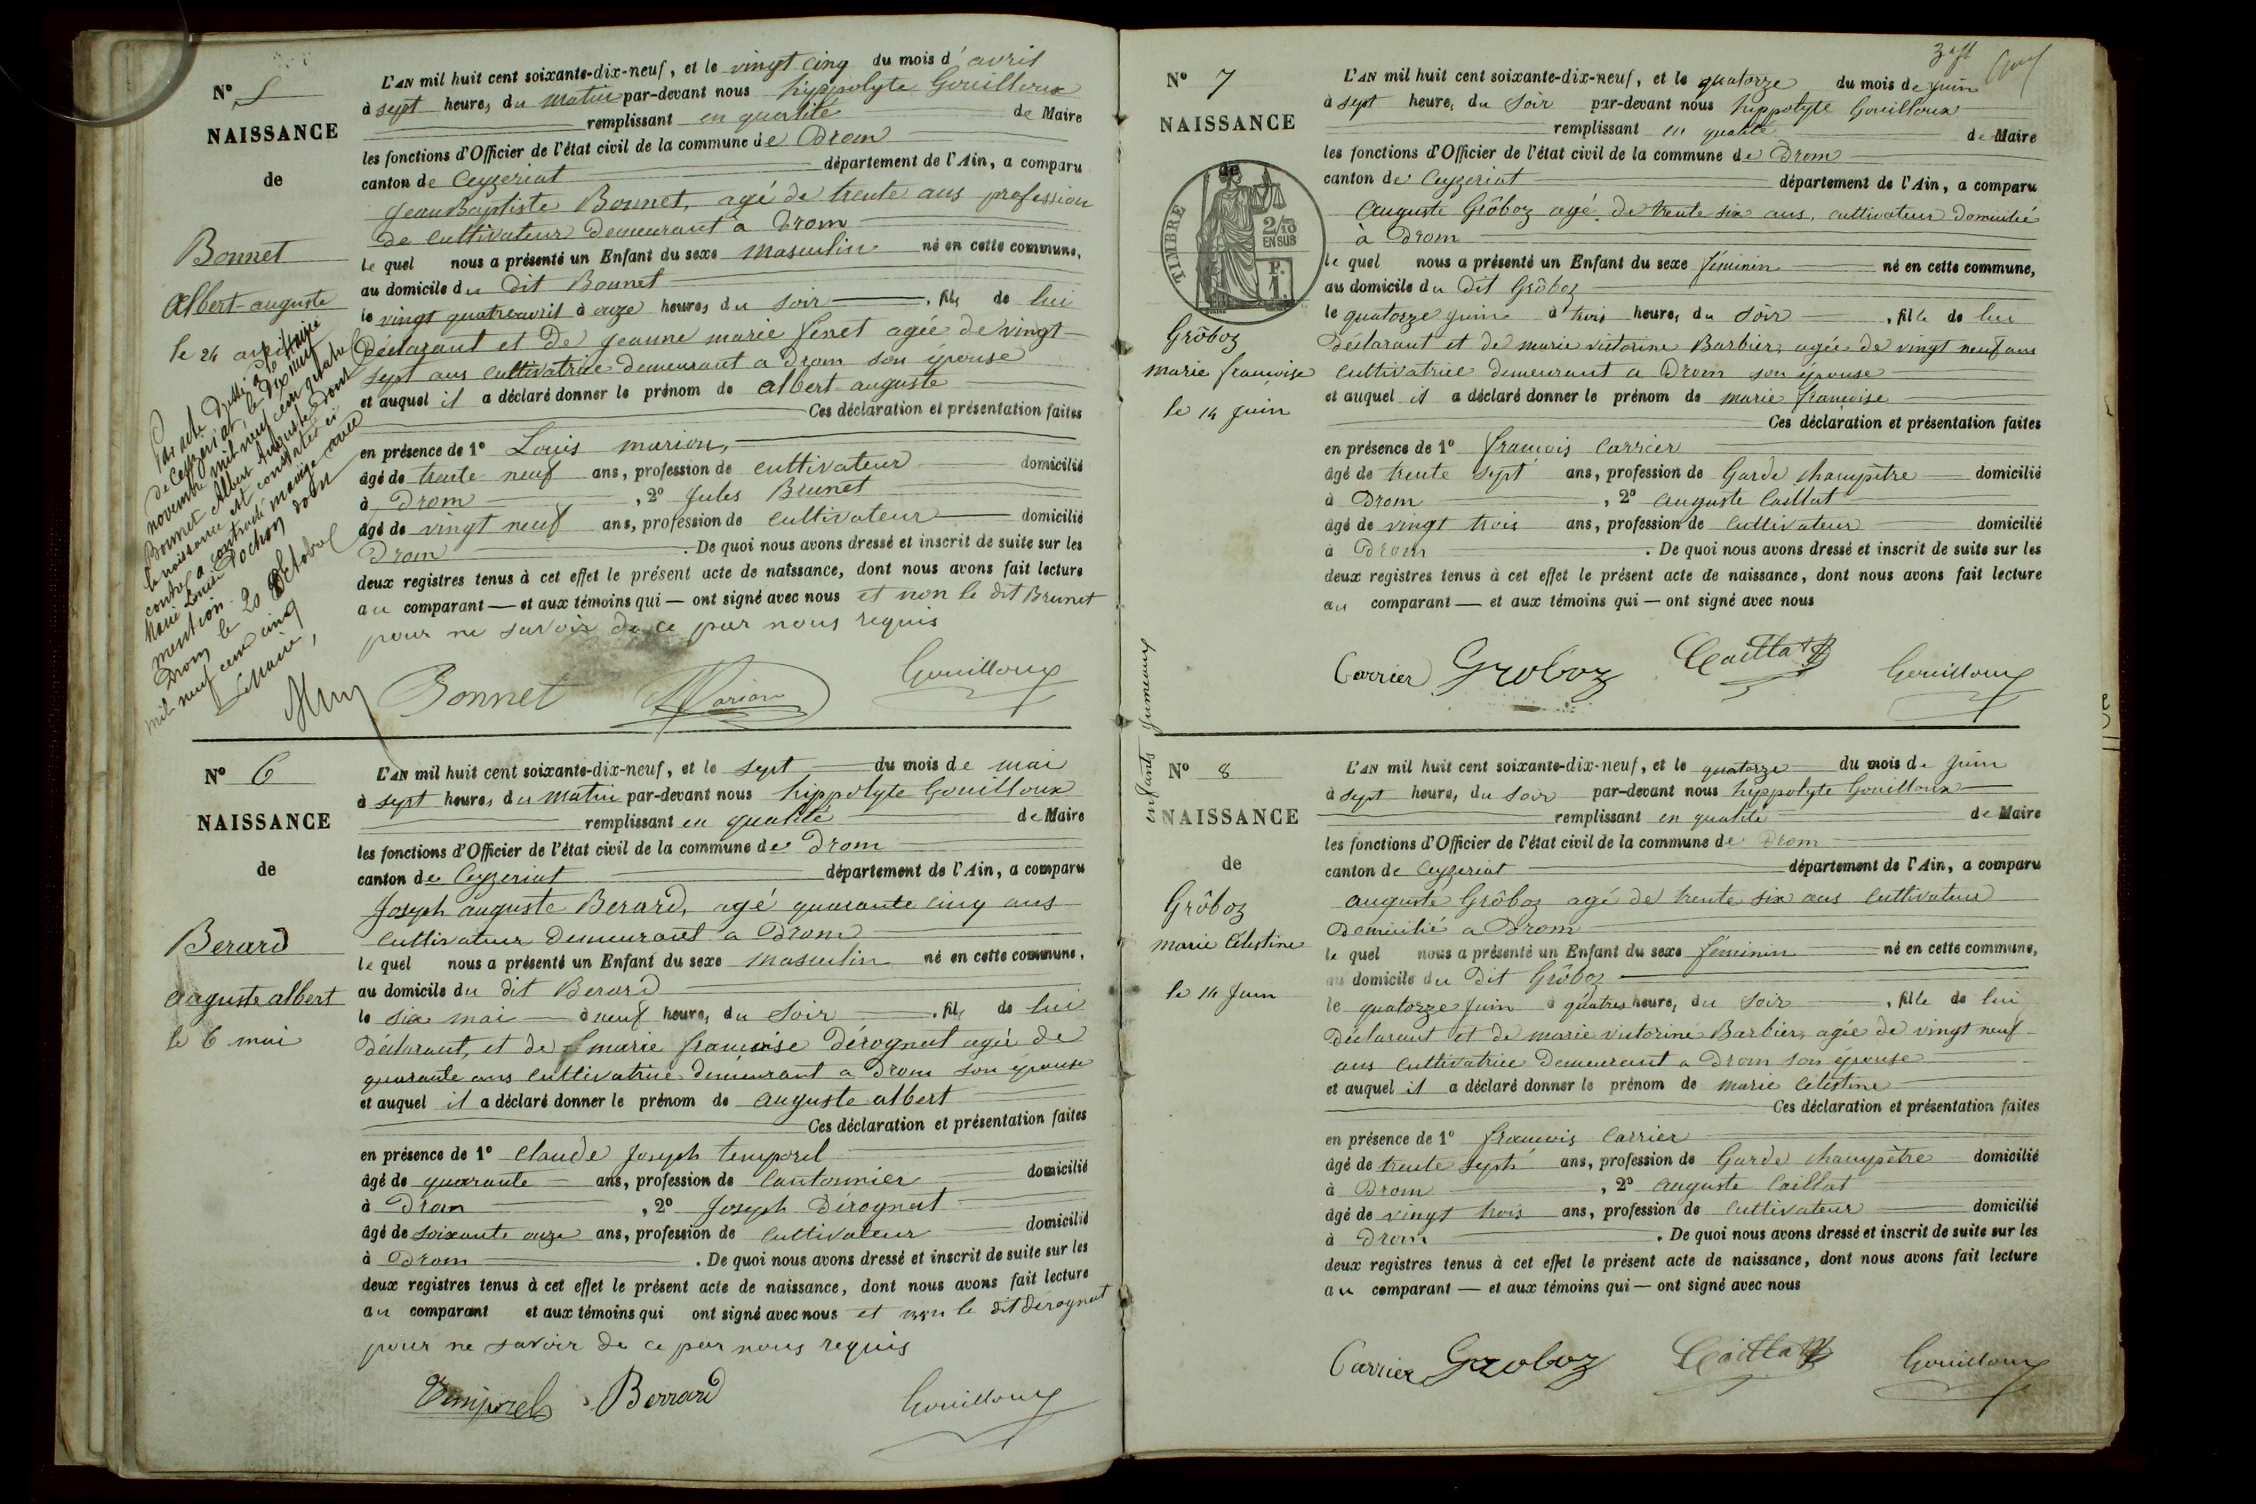 N° 5
NAISSANCE
de
Bonnet
Albert auguste
le 24 avril
Par acte dressé à la Mairie
de Ceyzeriat, le dix neuf
novembre mil neuf cent quatre
Bonnet Albert Auguste dont
la naissance est constatée ci
contre a contracté mariage avec
Marie Louise Pochon dont
mention.
Drom le 20 Octobre
mil neuf cent cinq
Le Maire,
L'AN mil huit cent soixante-dix-neuf, et le vingt cinq du mois d'avril
à sept heures du matin par-devant nous hyppolyte Gouilloux
remplissant en qualité de Maire
les fonctions d'Officier de l'état civil de la commune de Drom
canton de Ceyzeriat département de l'Ain, a comparu
Jean Baptiste Bonnet, agé de trente ans profession
de cultivateur demeurant à Drom
le quel nous a présenté un Enfant du sexe masculin né en cette commune,
au domicile du dit Bonnet
le vingt quatre avril à onze heures du soir, fils de lui
déclarant et de jeanne marie fenet agée de vingt
sept ans cultivatrice demeurant a Drom son épouse
et auquel il a déclaré donner le prénom de albert auguste
Ces déclaration et présentation faites
en présence de 1° Louis marion,
âgé de trente neuf ans, profession de cultivateur domicilié
à Drom, 2° Jules Brunet
âgé de vingt neuf ans, profession de cultivateur domicilié
Drom. De quoi nous avons dressé et inscrit de suite sur les
deux registres tenus à cet effet le présent acte de naissance, dont nous avons fait lecture
au comparant — et aux témoins qui — ont signé avec nous et non le dit Brunet
pour ne savoir de ce par nous requis
Bonnet Marion Gouilloux
N° 6
NAISSANCE
de
Berard
auguste albert
le 6 mai
L'AN mil huit cent soixante-dix-neuf, et le sept du mois de mai
à sept heures du matin par-devant nous hippolyte Gouilloux
remplissant en qualité de Maire
les fonctions d'Officier de l'état civil de la commune de Drom
canton de Ceyzeriat département de l'Ain, a comparu
Joseph auguste Berard, agé quarante cinq ans
cultivateur demeurant a Drom
le quel nous a présenté un Enfant du sexe masculin né en cette commune,
au domicile du dit Berard
le six mai à neuf heures du soir, fils de lui
déclarant, et de marie françoise Dérognat agée de
quarante ans cultivatrice demeurant a Drom son épouse
et auquel il a déclaré donner le prénom de auguste albert
Ces déclaration et présentation faites
en présence de 1° Claude Joseph temporel
âgé de quarante ans, profession de Cantonnier domicilié
à Drom, 2° Joseph Dérognat
âgé de soixante onze ans, profession de cultivateur domicilié
à Drom. De quoi nous avons dressé et inscrit de suite sur les
deux registres tenus à cet effet le présent acte de naissance, dont nous avons fait lecture
au comparant et aux témoins qui ont signé avec nous et non le dit Dérognat
pour ne savoir de ce par nous requis
Temporel Berrard Gouilloux
N° 7
NAISSANCE
de
TIMBRE
2/10
EN SUS
Grôboz
marie françoise
le 14 juin
L'AN mil huit cent soixante-dix-neuf, et le quatorze du mois de juin
à sept heures du soir par-devant nous hippolyte Gouilloux
remplissant en qualité de Maire
les fonctions d'Officier de l'état civil de la commune de Drom
canton de Ceyzeriat département de l'Ain, a comparu
Auguste Grôboz agé de trente six ans, cultivateur domicilié
à Drom
le quel nous a présenté un Enfant du sexe féminin né en cette commune,
au domicile du dit Grôboz
le quatorze juin à trois heures du soir, fille de lui
déclarant et de marie victorine Barbier, agée de vingt neuf ans
cultivatrice demeurant a Drom son épouse
et auquel il a déclaré donner le prénom de marie françoise
Ces déclaration et présentation faites
en présence de 1° françois Carrier
âgé de trente sept ans, profession de Garde champêtre domicilié
à Drom, 2° auguste Caillat
âgé de vingt trois ans, profession de cultivateur domicilié
à Drom. De quoi nous avons dressé et inscrit de suite sur les
deux registres tenus à cet effet le présent acte de naissance, dont nous avons fait lecture
au comparant — et aux témoins qui — ont signé avec nous
Carrier Groboz Caillat Gouilloux
enfants Jumeaux
N° 8
NAISSANCE
de
Grôboz
marie Célestine
le 14 Juin
L'AN mil huit cent soixante-dix-neuf, et le quatorze du mois de juin
à sept heures du soir par-devant nous hyppolyte Gouilloux
remplissant en qualité de Maire
les fonctions d'Officier de l'état civil de la commune de Drom
canton de Ceyzeriat département de l'Ain, a comparu
auguste Grôboz agé de trente six ans cultivateur
domicilié a Drom
le quel nous a présenté un Enfant du sexe féminin né en cette commune,
au domicile du dit Grôboz
le quatorze juin à quatres heures du soir, fille de lui
déclarant et de marie victorine Barbier, agée de vingt neuf
ans cultivatrice demeurant a Drom son épouse
et auquel il a déclaré donner le prénom de marie célestine
Ces déclaration et présentation faites
en présence de 1° françois Carrier
âgé de trente sept ans, profession de Garde champêtre domicilié
à Drom, 2° auguste Caillat
âgé de vingt trois ans, profession de cultivateur domicilié
à Drom. De quoi nous avons dressé et inscrit de suite sur les
deux registres tenus à cet effet le présent acte de naissance, dont nous avons fait lecture
au comparant — et aux témoins qui — ont signé avec nous
Carrier Groboz Caillat Gouilloux